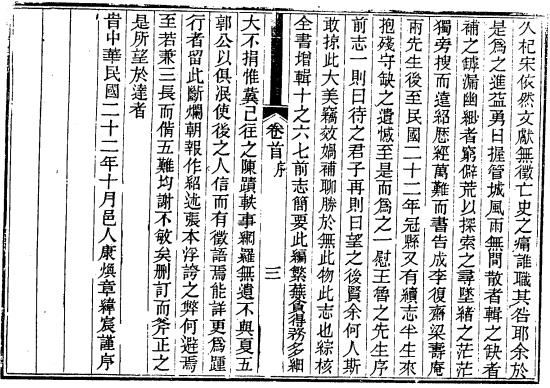 久杞宋依然文獻無徵亡史之痛誰職其咎耶余於
是爲之進益勇日握管城風雨無間散者輯之缺者
補之罅漏幽細者窮僻荒以探索之尋墜緒之茫茫
獨旁搜而遠紹歷經萬難而書告成李復齋梁壽菴
兩先生後至民國二十二年冠縣又有續志半生來
抱殘守缺之遺憾至是而爲之一慰王魯之先生序
前志一則曰待之君子再則曰望之後賢余何人斯
敢掠此大美竊效媧補聊勝於無此物此志也綜核
全書增輯十之六七前志簡要此編繁蕪貪得務多細
卷首 序 三
大不捐惟冀已往之陳蹟軼事網羅無遺不與夏五
郭公以俱泯使後之人信而有徵語焉能詳更爲踵
行者留此斷爛朝報作紹述張本浮誇之弊何避焉
至若兼三長而偕五難均謝不敏矣删訂而斧正之
是所望於達者
旹中華民國二十二年十月邑人康煥章緯宸謹序